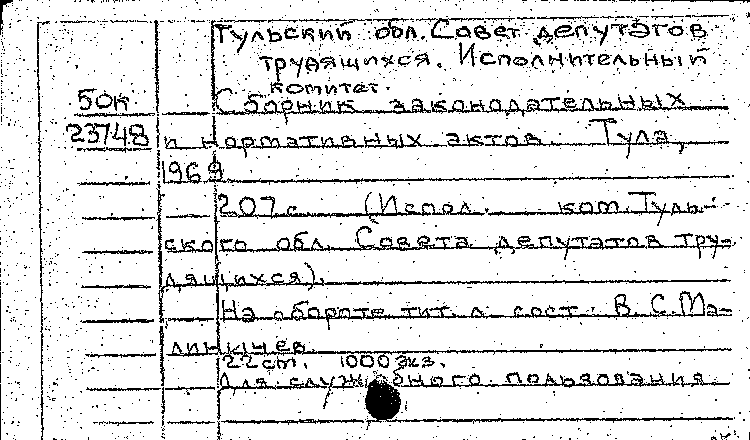 Тульский обл. Совет депутатов
трудящихся. Исполнительный
комитет.
50к Сборник законодательных
23748 и нормативных актов. Тула,
1969
207 с. (Испол. ком. Туль-
ского обл. Совета депутатов тру-
дящихся).
На обороте тит. л. сост. В. С. Ма-
линичев.
22 cm. 1000 экз.
Для служебного пользования